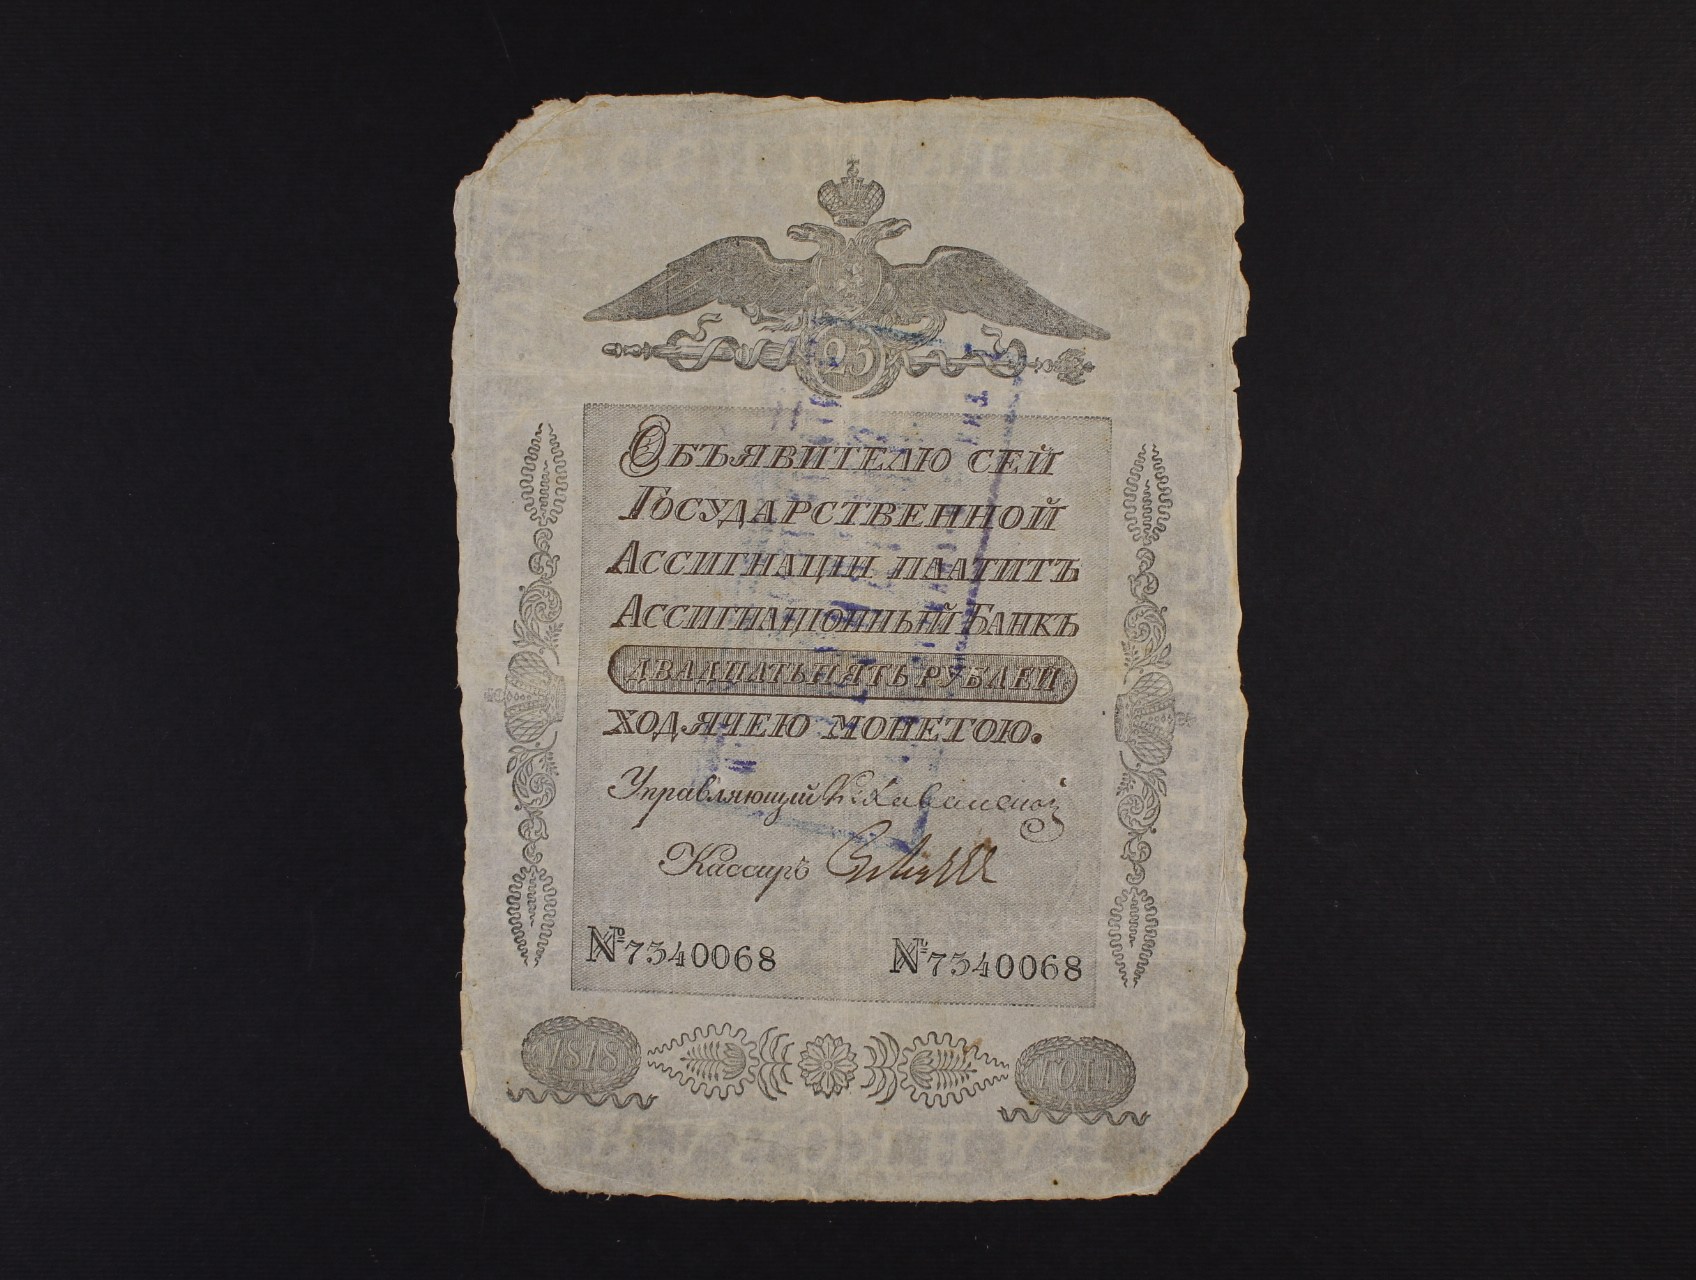 25
Объявителю сей
Государственной
Ассигнаціи платитъ
Ассигнаціонный Банкъ
двадцать пять рублей
ходячею монетою.
Управляющій
Кассиръ
№ 7340068 № 7340068
1818 ГОДА